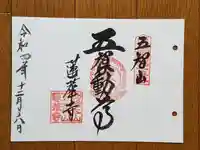 五智山
五智動尊
蓮華寺
令和四年十二月八日